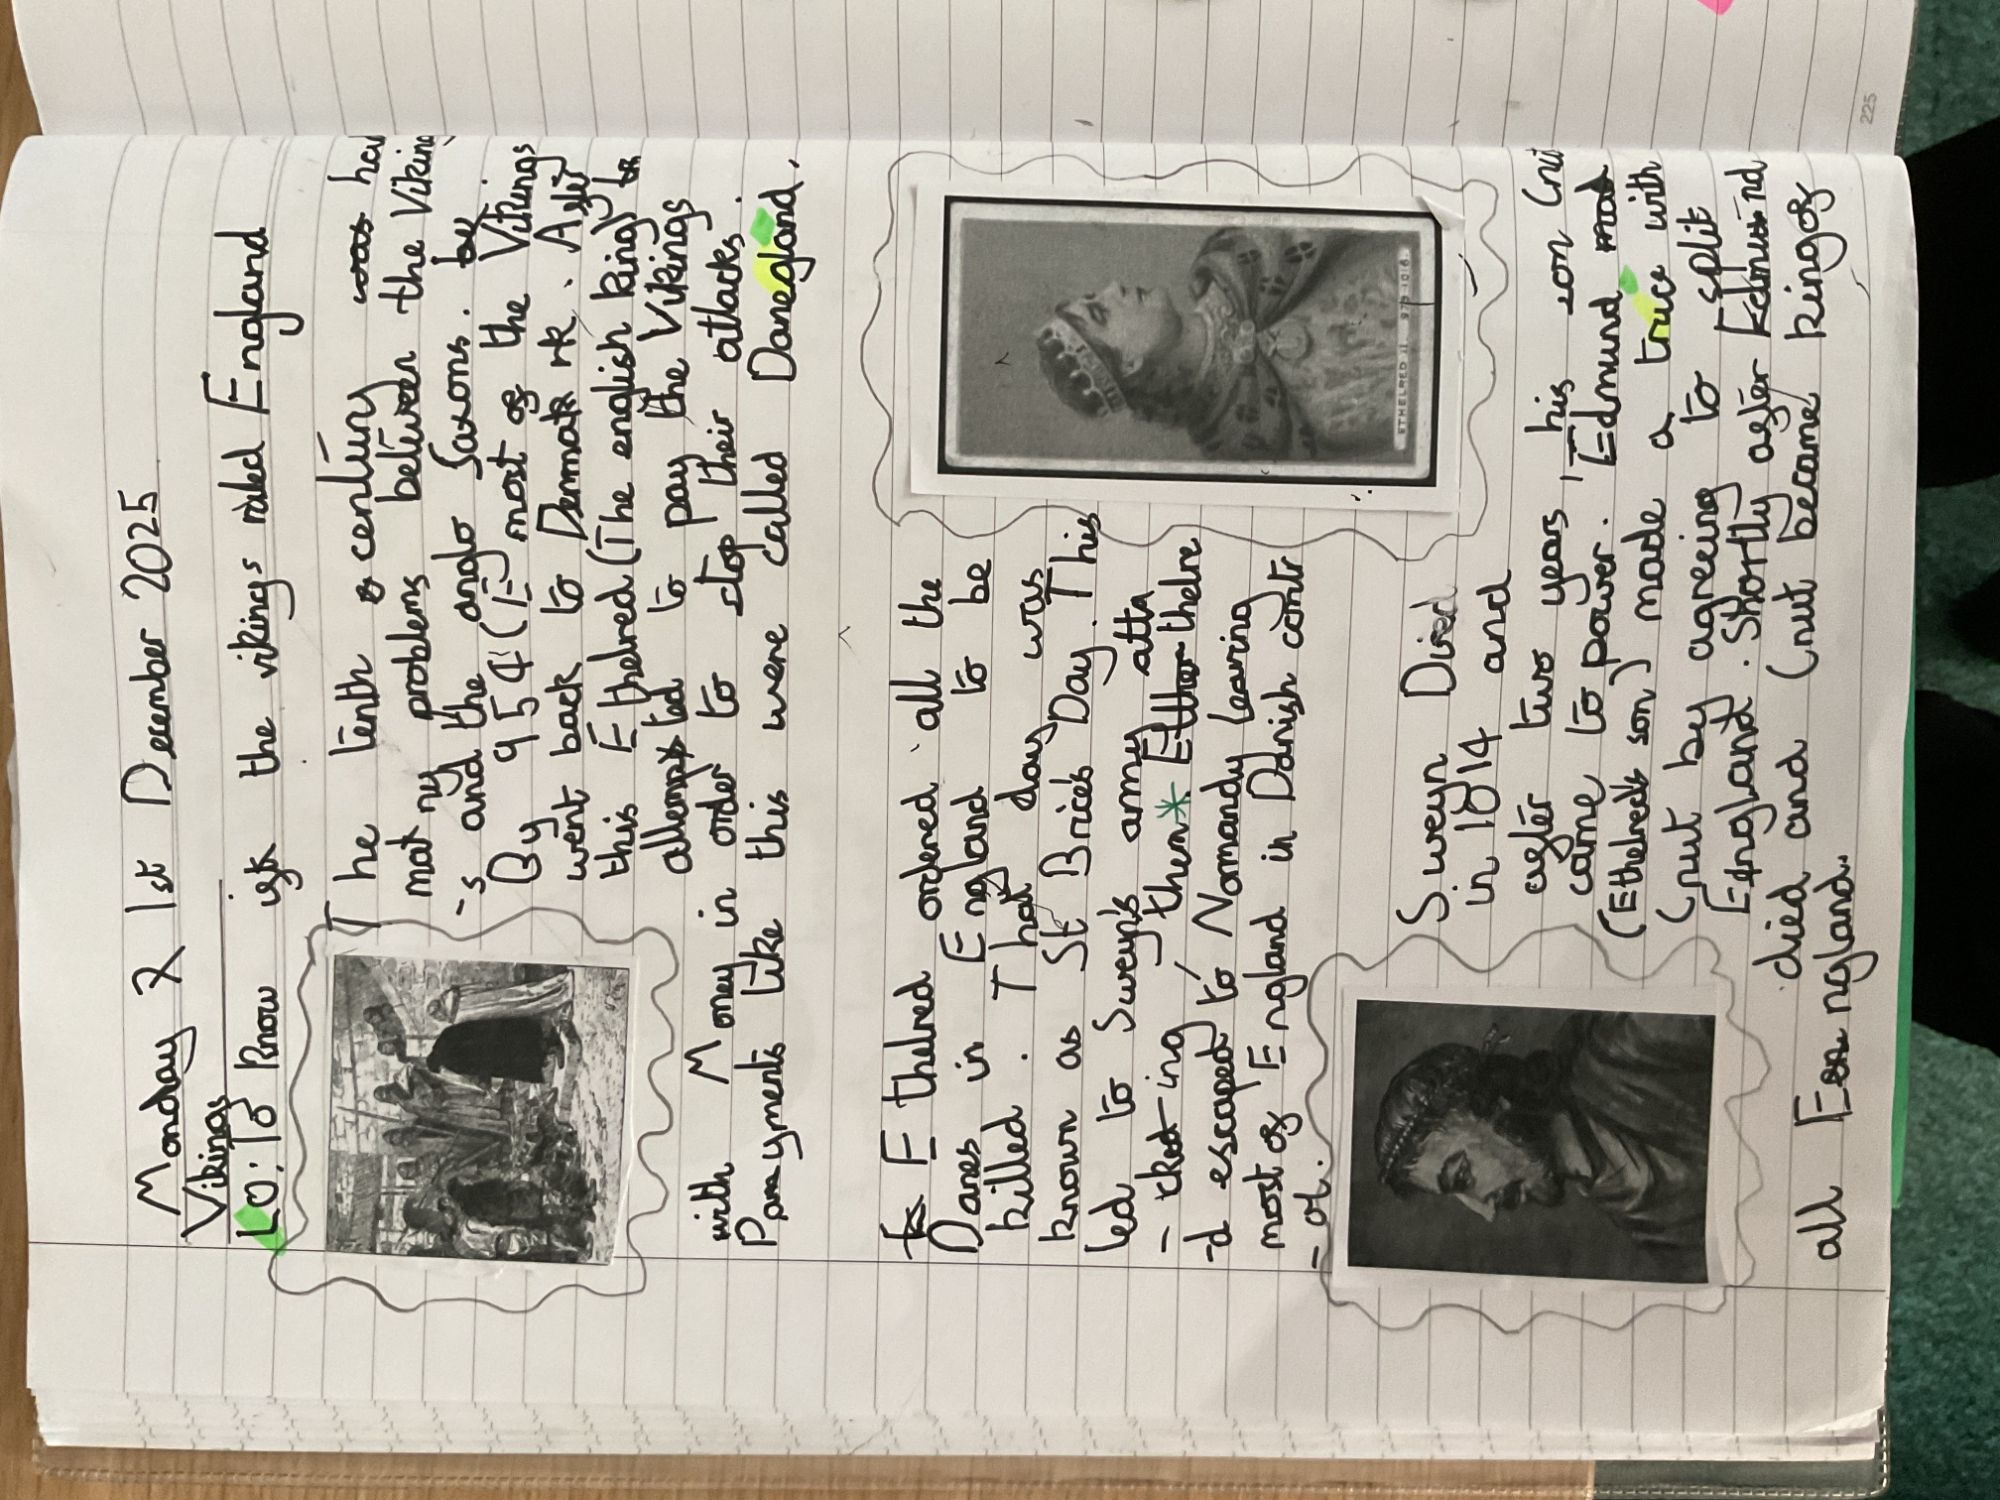 Monday 1st December 2025
Vikings
LO: To Know if the vikings ruled England
The tenth century had
many problems between the Viking
-s and the anglo Saxons.
By 954 (E most of the Vikings
went back to Denmark. After
this Ethelred (The english king)
attempted to pay the Vikings
with Money in order to stop their attacks.
Payments like this were called Danegland.
Ethelred ordered all the
Danes in England to be
killed. That day was
known as St Brices Day. This
led to Sweyn's army atta
-cking them* Ethelre
-d escaped to Normandy leaving
most of England in Danish contr
-ol.
ETHELRED II. 979-1016.
Sweyn Died
in 1014 and
after two years, his son Cnut
came to power. Edmund
(Ethelreds son) made a truce with
Cnut by agreeing to split
England. Shortly after Edmund
died and Cnut became king of
all England.
225